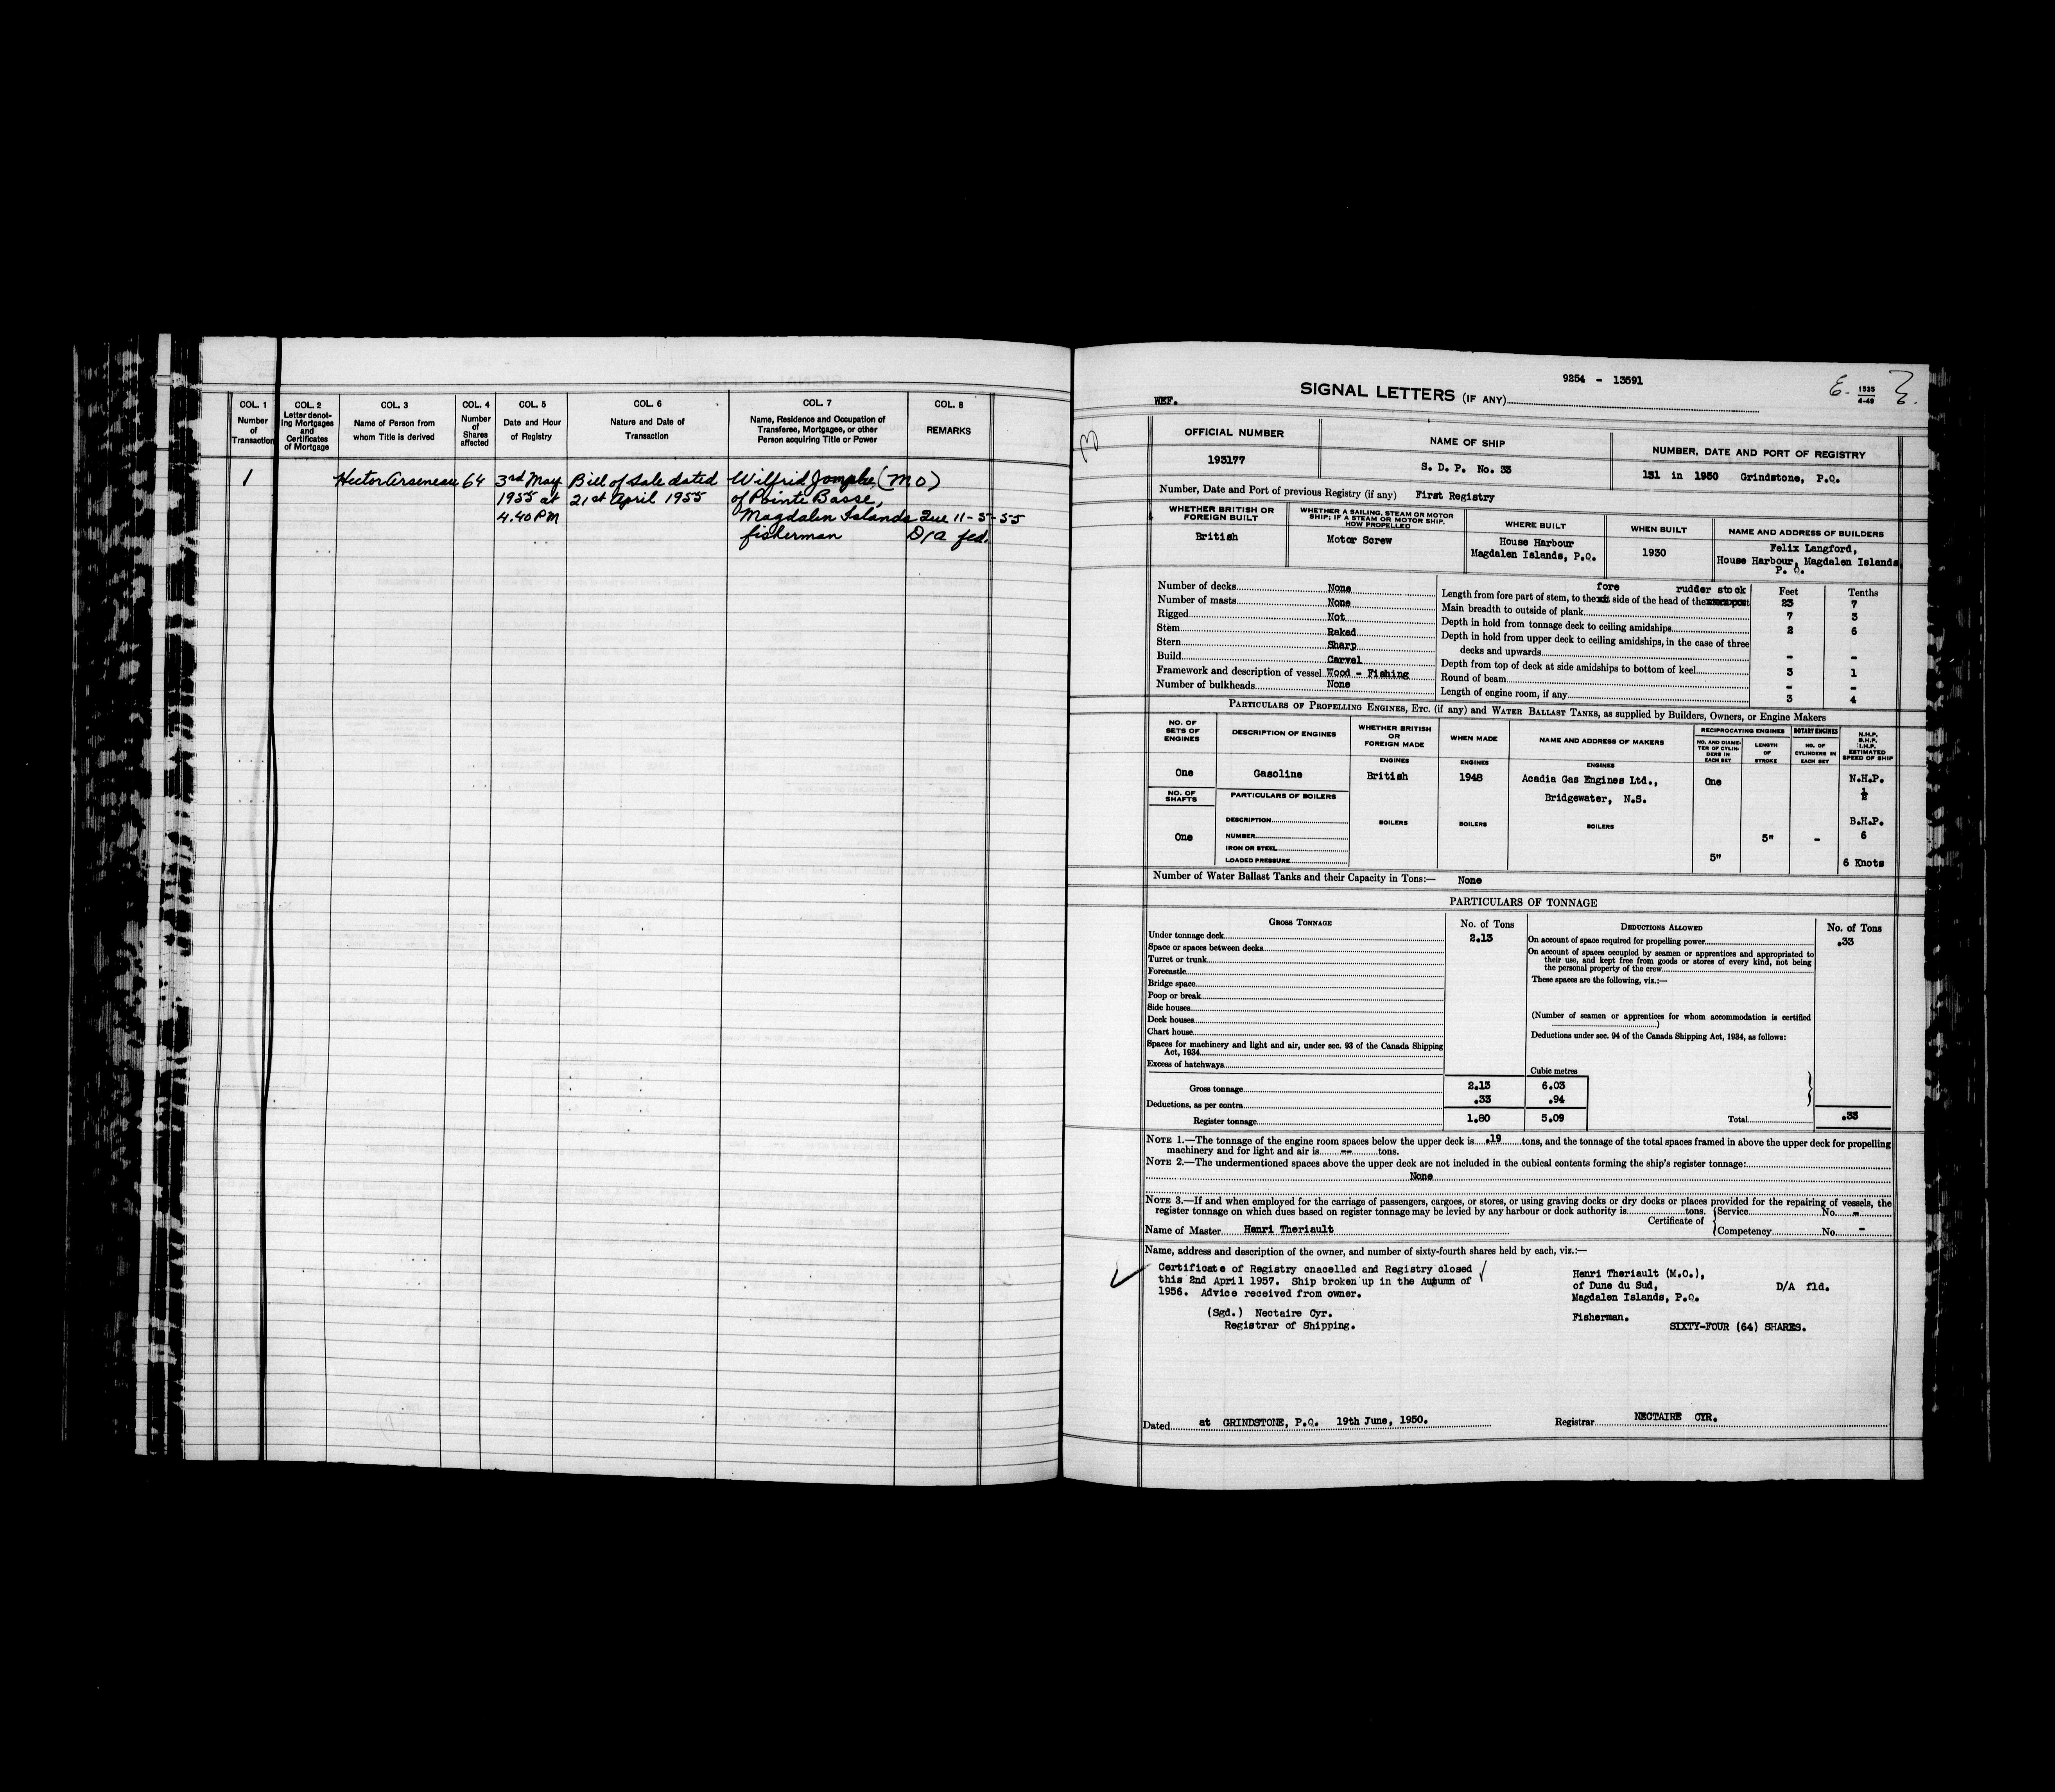 COL. 1
Number
of
Transaction
COL. 2
Letter denot-
ing Mortgages
and
Certificates
of Mortgage
COL. 3
Name of Person from
whom Title is derived
COL. 4
Number
of
Shares
affected
COL. 5
Date and Hour
of Registry
COL. 6
Nature and Date of
Transaction
COL. 7
Name, Residence and Occupation of
Transferee, Mortgagee, or other
Person acquiring Title or Power
COL. 8
REMARKS
1 Hector Arseneau 64 3rd May Bill of Sale dated Wilfrid Jomphe (MO)
1955 at 21st April 1955 of Pointe Basse,
4.40 PM Magdalen Islands Que 11-5-55
fisherman D/a fld.
9254 - 13591
SIGNAL LETTERS (IF ANY)
WEF.
E. 1535
4-49
3
OFFICIAL NUMBER
193177
NAME OF SHIP
S. D. P. No. 33
NUMBER, DATE AND PORT OF REGISTRY
131 in 1950 Grindstone, P.Q.
Number, Date and Port of previous Registry (if any) First Registry
WHETHER BRITISH OR
FOREIGN BUILT
British
WHETHER A SAILING, STEAM OR MOTOR
SHIP; IF A STEAM OR MOTOR SHIP,
HOW PROPELLED
Motor Screw
WHERE BUILT
House Harbour
Magdalen Islands, P.Q.
WHEN BUILT
1930
NAME AND ADDRESS OF BUILDERS
Felix Langford,
House Harbour, Magdalen Islands
P. Q.
Number of decks None
Number of masts None
Rigged Not
Stem Raked
Stern Sharp
Build Carvel
Framework and description of vessel Wood - Fishing
Number of bulkheads None
Feet Tenths
fore rudder stock
Length from fore part of stem, to the side of the head of the 23 7
Main breadth to outside of plank 7 3
Depth in hold from tonnage deck to ceiling amidships 2 6
Depth in hold from upper deck to ceiling amidships, in the case of three
decks and upwards - -
Depth from top of deck at side amidships to bottom of keel 3 1
Round of beam - -
Length of engine room, if any 3 4
PARTICULARS OF PROPELLING ENGINES, ETC. (if any) and WATER BALLAST TANKS, as supplied by Builders, Owners, or Engine Makers
NO. OF
SETS OF
ENGINES
DESCRIPTION OF ENGINES
WHETHER BRITISH
OR
FOREIGN MADE
WHEN MADE
NAME AND ADDRESS OF MAKERS
RECIPROCATING ENGINES
NO. AND DIAME-
TER OF CYLIN-
DERS IN
EACH SET
LENGTH
OF
STROKE
ROTARY ENGINES
NO. OF
CYLINDERS IN
EACH SET
N.H.P.
B.H.P.
I.H.P.
ESTIMATED
SPEED OF SHIP
ENGINES ENGINES ENGINES
One Gasoline British 1948 Acadia Gas Engines Ltd., One N.H.P.
Bridgewater, N.S. ½
NO. OF
SHAFTS
PARTICULARS OF BOILERS
DESCRIPTION BOILERS BOILERS BOILERS B.H.P.
One NUMBER 5" - 6
IRON OR STEEL
LOADED PRESSURE 5" 6 Knots
Number of Water Ballast Tanks and their Capacity in Tons:— None
PARTICULARS OF TONNAGE
GROSS TONNAGE No. of Tons
Under tonnage deck 2.13
Space or spaces between decks
Turret or trunk
Forecastle
Bridge space
Poop or break
Side houses
Deck houses
Chart house
Spaces for machinery and light and air, under sec. 93 of the Canada Shipping
Act, 1934
Excess of hatchways
Cubic metres
Gross tonnage 2.13 6.03
Deductions, as per contra .33 .94
Register tonnage 1.80 5.09
DEDUCTIONS ALLOWED No. of Tons
On account of space required for propelling power .33
On account of spaces occupied by seamen or apprentices and appropriated to
their use, and kept free from goods or stores of every kind, not being
the personal property of the crew
These spaces are the following, viz.:—
(Number of seamen or apprentices for whom accommodation is certified
)
Deductions under sec. 94 of the Canada Shipping Act, 1934, as follows:
Total .33
NOTE 1.—The tonnage of the engine room spaces below the upper deck is .19 tons, and the tonnage of the total spaces framed in above the upper deck for propelling
machinery and for light and air is -- tons.
NOTE 2.—The undermentioned spaces above the upper deck are not included in the cubical contents forming the ship's register tonnage:
None
NOTE 3.—If and when employed for the carriage of passengers, cargoes, or stores, or using graving docks or dry docks or places provided for the repairing of vessels, the
register tonnage on which dues based on register tonnage may be levied by any harbour or dock authority is tons.
Certificate of
Service No. -
Competency No. -
Name of Master Henri Theriault
Name, address and description of the owner, and number of sixty-fourth shares held by each, viz.:—
Certificate of Registry cnacelled and Registry closed
this 2nd April 1957. Ship broken up in the Autumn of
1956. Advice received from owner.
(Sgd.) Nectaire Cyr.
Registrar of Shipping.
Henri Theriault (M.O.),
of Dune du Sud, D/A fld.
Magdalen Islands, P.Q.
Fisherman.
SIXTY-FOUR (64) SHARES.
Dated at GRINDSTONE, P.Q. 19th June, 1950.
Registrar NECTAIRE CYR.